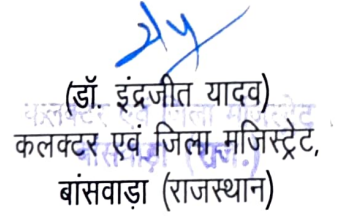 (डॉ. इंद्रजीत यादव)
कलक्टर एवं जिला मजिस्ट्रेट,
बांसवाड़ा (राजस्थान)